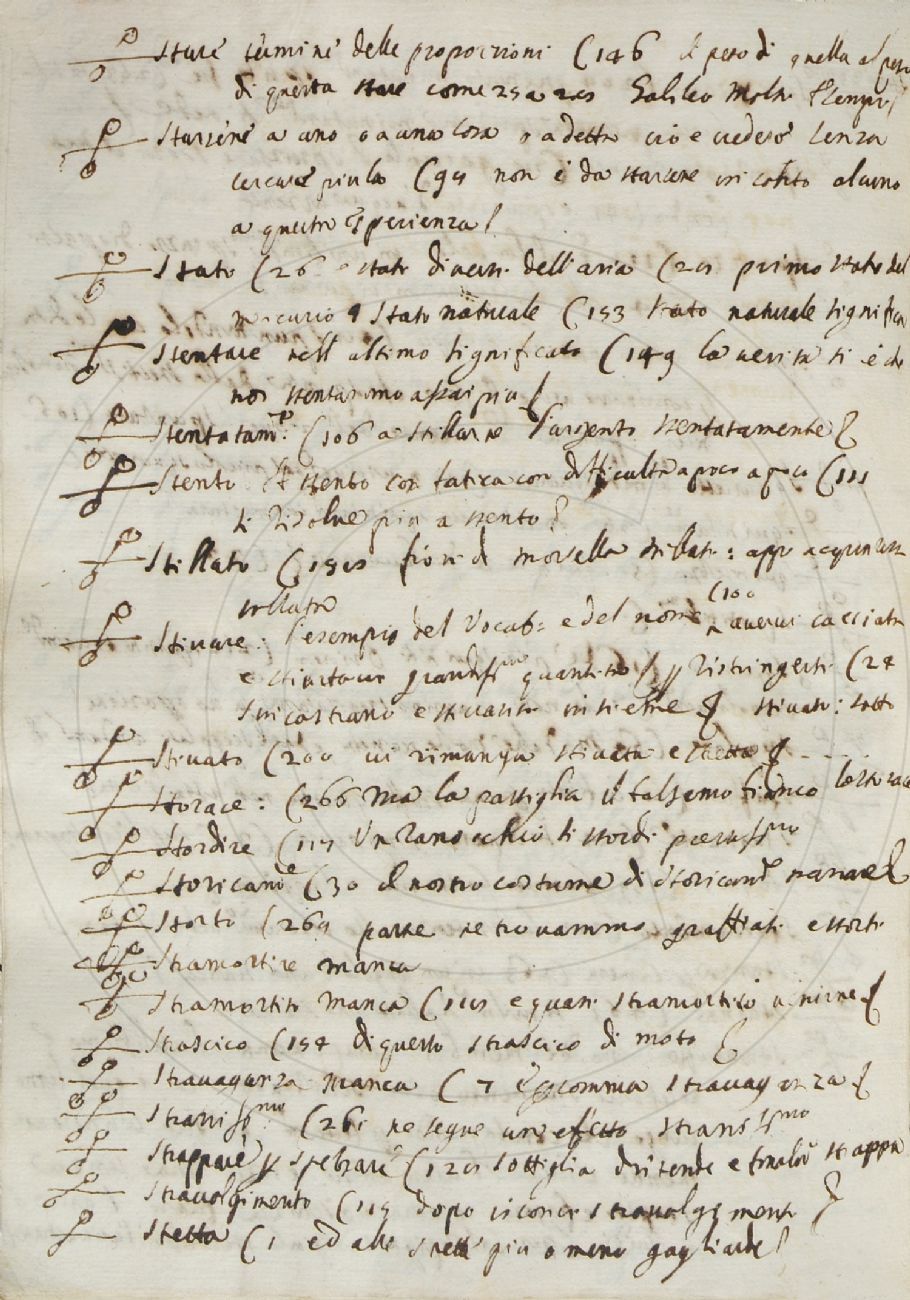 Stare termine delle proporzioni (146 il peso di quella al peso
di questa stare come 25 a 201 Galileo Molti Esempi
Starsene a uno o a una cosa o a detta cio e credere senza
cercare piu la (94 non è da starsene in conto alcuno
a questa Esperienza
Stato (26 stati diversi dell'aria (201 primo stato del
mercurio Stato naturale (153 Stato naturale significa
Stentare nell ultimo significato (149 la verita si è che
noi stentammo assai piu
Stentatam.te (106 a stillare l'argento stentatamente
Stento stento con fatica con difficultà a poco a poco (111
si risolve piu a stento
Stillato (fiori di mortella stillati: app acqua
stillata
Stivare: l'esempio del Vocab: e del nome (100 avervi cacciata
e stivatavi grandiss.ma quantità ristringersi (24
s'incastrano e stivansi insieme stivato: sotto
Stivato (200 vi rimanga stivata e stretta
Storace: (266 Ma la pastiglia il balsamo bianco lo storace
Stordire (117 Un Ranocchio si stordì
Storicam.te (30 il nostro costume di storicam.te narrare
Storto (269 parte ne trovammo graffiati e storti
Stramortire manca
Stramortito manca (e quasi stramortito
Strascico (154 di questo strascico di moto
Stravaganza manca (7 stravaganza
Straniss.mo (261 ne segue un effetto straniss.mo
Strappare sottiglia distende e strappa
Stravolgimento (119 dopo stravolgimenti
Stretta (1 ed alle strette piu o meno gagliarde